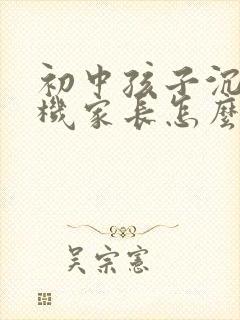 初中孩子沉
機家長怎麼
吴宗憲